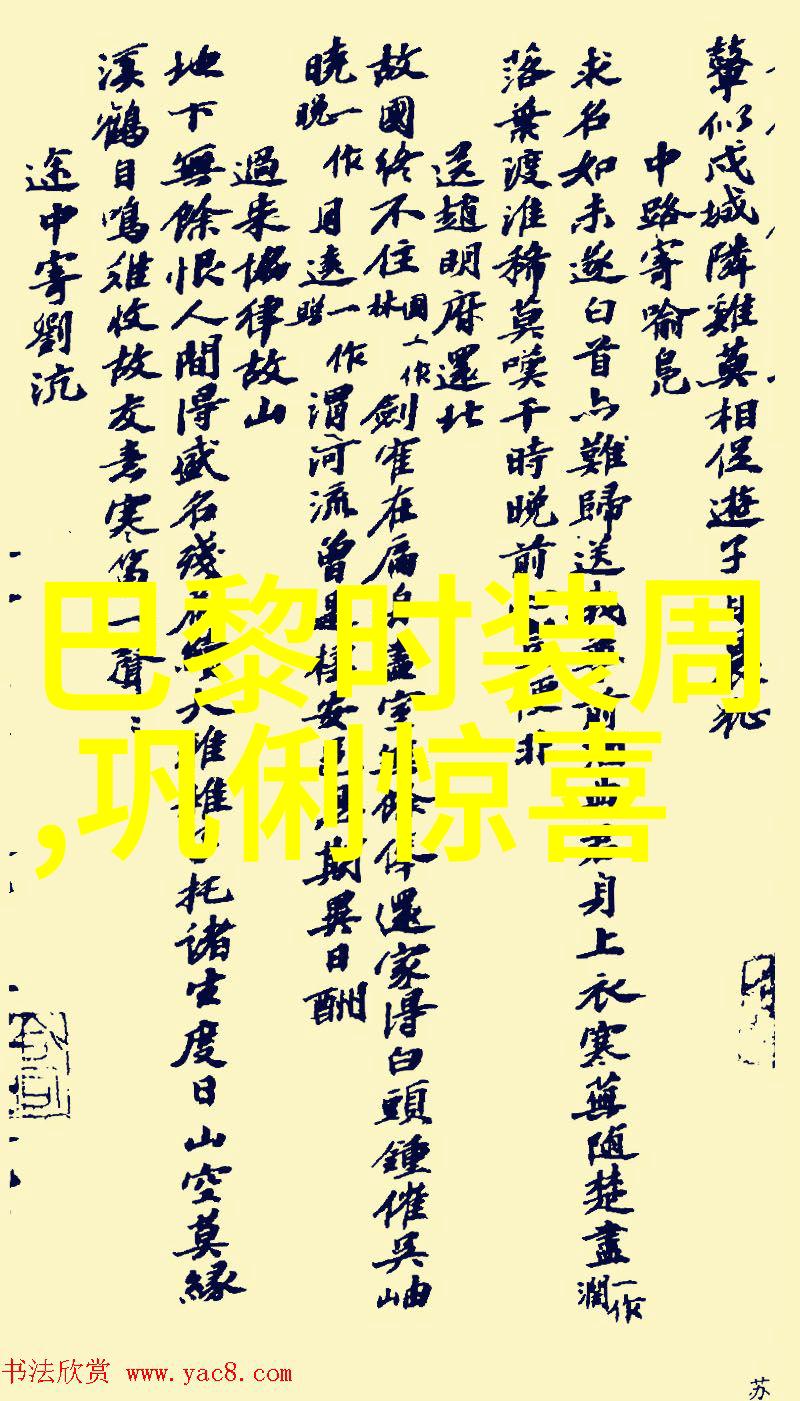 葦似戍城隣雞莫相促遊子自晨征
中路寄喻鳧
求名如未遂白首亦難歸送我無前
身上衣寒蕪隨楚盡
一作
澗
落葉渡淮稀莫嘆干時晚前
便非
送趙明府還北
故國終不住
國一作
林
劍
在
盡室
俸還家得白頭鍾催吳岫
曉一作
晚
月遠
一作
渭河流曾是
安邑
期異日酬
過朱協律故山
地下無餘恨人間得盛名殘
大雅
托諸生度日山空莫緣
溪鶴自鳴
收故友
寒
一聲
途中寄劉沆
巴黎时装周
,巩俐惊喜
书法欣赏 www.yac8.com
苏